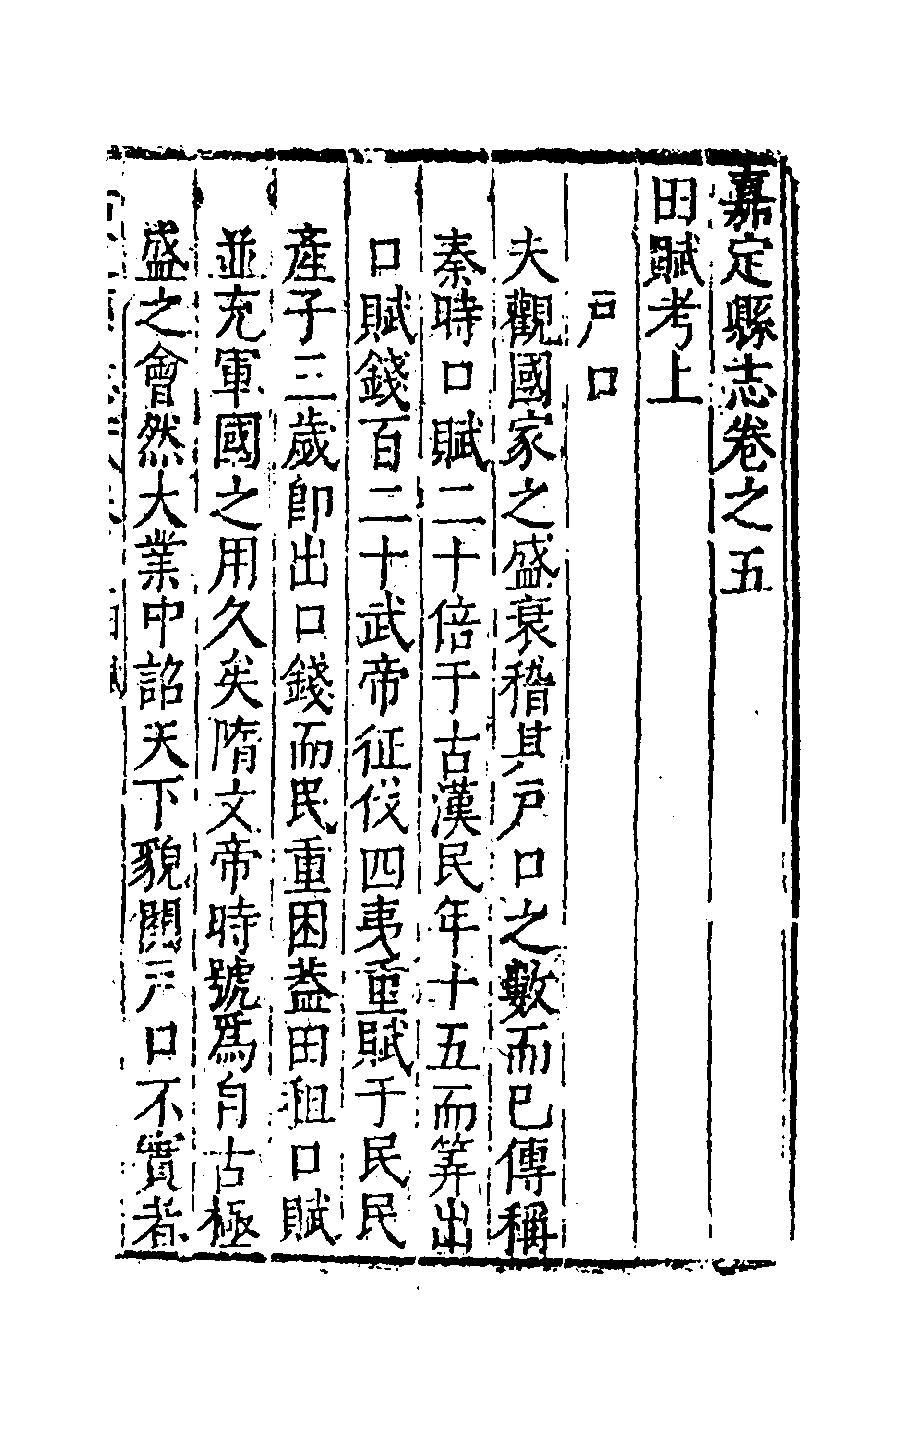 嘉定縣志卷之五
田賦考上
戸口
夫觀國家之盛衰稽其戸口之數而已傳稱
秦時口賦二十倍于古漢民年十五而筭出
口賦錢百二十武帝征伐四夷重賦于民民
產子三歲卽出口錢而民重困葢田租口賦
並充軍國之用久矣隋文帝時號爲自古極
盛之會然大業中詔天下貌閱戸口不實者